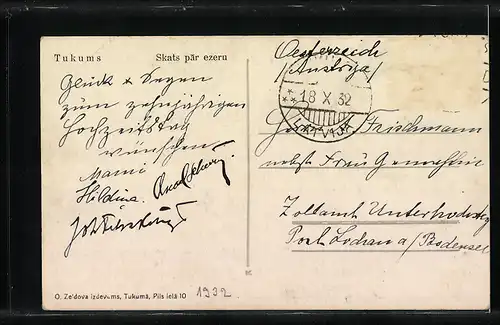 Tukums Skats pār ezeru
Glück & Segen
zum zehnjährigen
Hochzeitstag
wünschen
Mami
Hildina
Oesterreich
(Austrija)
18 X 32
LATVIJA
Frischmann
nebst Frau Gemahlin
Zollamt Unterhochsteg
Post Lochau a/Bodensee
O. Zeldova izdevums, Tukumā, Pils ielā 10
1932